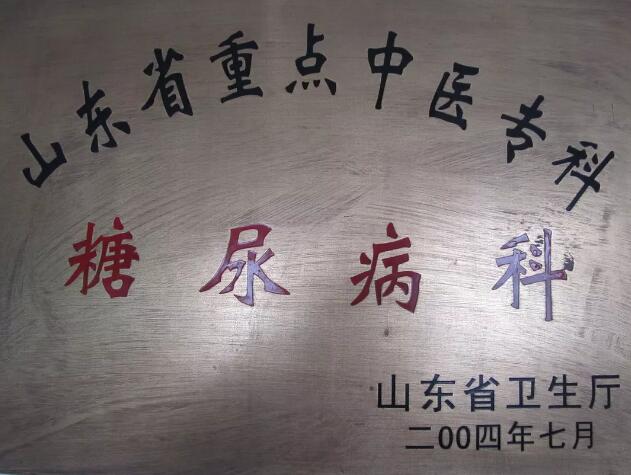 山东省重点中医专科
糖尿病科
山东省卫生厅
二00四年七月